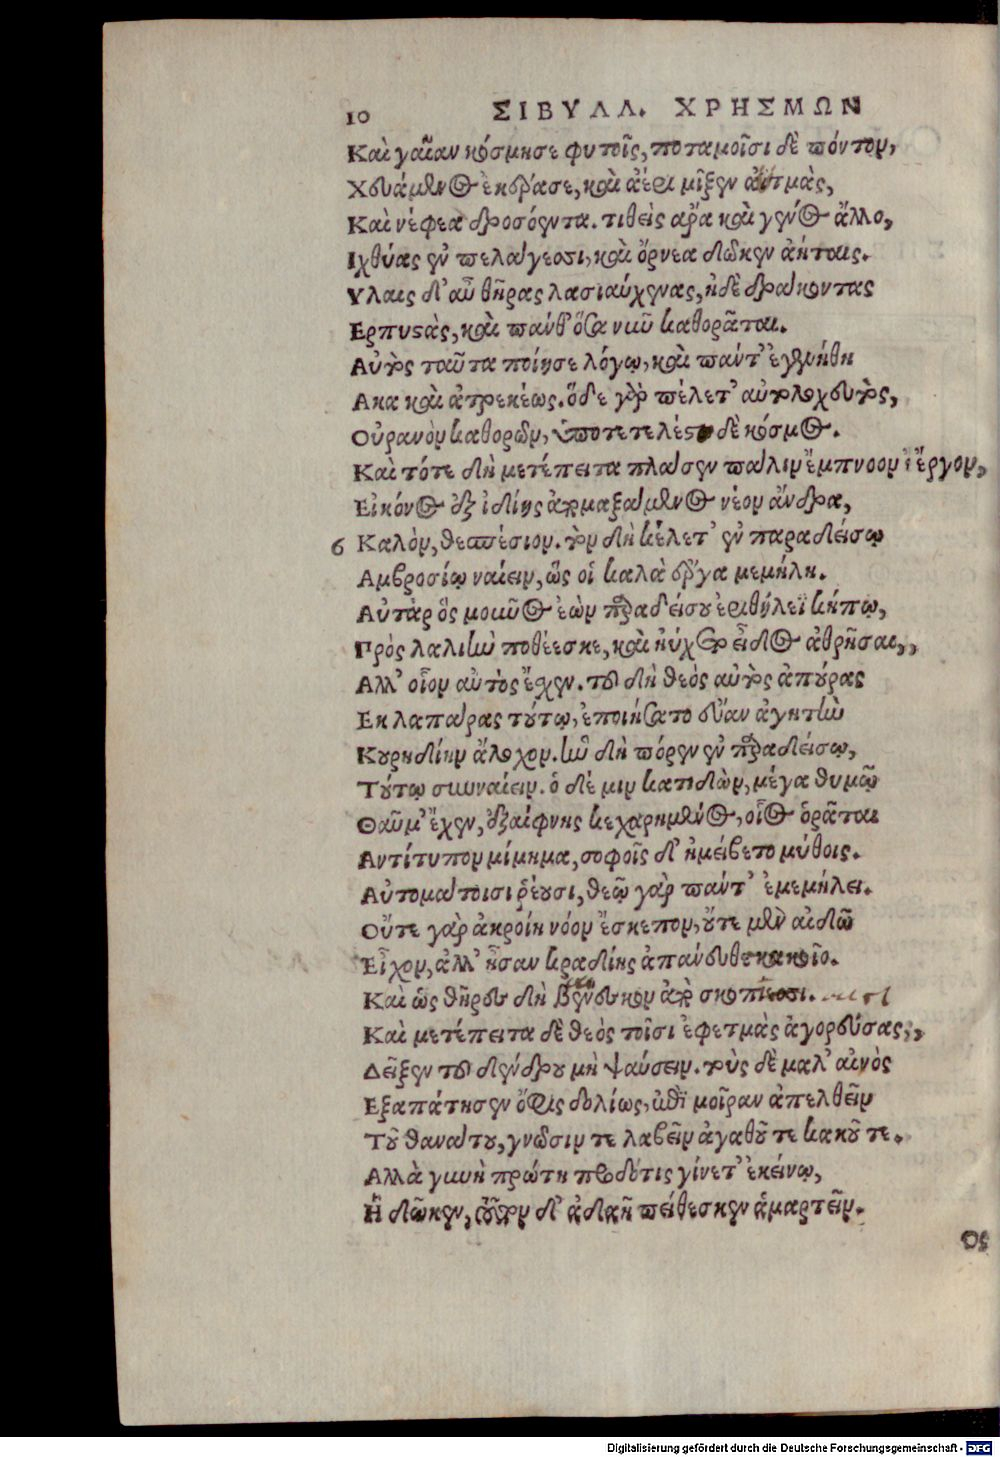 10 ΣΙΒΥΛΛ. ΧΡΗΣΜΩΝ
Καὶ γαῖαν κόσμησε φυτοῖς, ποταμοῖσι δὲ πόντον,
Χευάμενος ἐκέρασε, καὶ ἀέρι μῖξεν ἀϋτμὰς,
Καὶ νέφεα δροσόεντα. τιθεὶς ἄρα καὶ γένος ἄλλο,
Ιχθύας ἐν πελάγεσσι, καὶ ὄρνεα δῶκεν ἀήταις.
Υλαις δ' αὖ θῆρας λασιαύχενας, ἠδὲ δράκοντας
Ερπυστὰς, καὶ πανθ' ὅσα νυῦ καθορᾶται.
Αὐτὸς ταῦτα ποίησε λόγῳ, καὶ παντ' ἐγενήθη
Ακα καὶ ἀτρεκέως. ὅδε γὰρ πέλετ' αὐτολοχευτὸς,
Οὐρανὸν καθορῶν, ὑποτετελέστο δὲ κόσμος.
Καὶ τότε δὴ μετέπειτα πλάσεν πάλιν ἔμπνοον ἔργον,
Εἰκόνος ἐξ ἰδίης ἀπομαξάμενος νέον ἄνδρα,
6 Καλὸν, θεσπέσιον. τὸν δὴ κέλετ' ἐν παραδείσῳ
Αμβροσίῳ ναίειν, ὥς οἱ καλὰ ἔργα μεμήλη.
Αὐτὰρ ὃς μοῦνος ἐὼν παραδείσου ἐριθήλεϊ κήπῳ,
Προσλαλιὴν ποθέεσκε, καὶ ηὔχετο εἶδος ἀθρῆσαι,
Αλλ' οἷον αὐτὸς ἔχεν. τοῦ δὴ θεὸς αὐτὸς ἀπούρας
Εκ λαπάρας ὀστοῦν, τούτῳ, ἐποιήσατο εὔαν ἀγητὴν
Κουριδίην ἄλοχον. ἣν δὴ πόρεν ἐν παραδείσῳ,
Τούτῳ συνναίειν. ὁ δέ μιν κατιδὼν, μέγα θυμῷ
Θαῦμ' ἔχεν, ἐξαίφνης κεχαρημένος, οἷος ὁρᾶται
Αντίτυπον μίμημα, σοφοῖς δ' ἠμείβετο μύθοις.
Αὐτομάτοισι ῥέουσι, θεῷ γὰρ παντ' ἐμεμήλει.
Οὔτε γὰρ ἀκροίη νόον ἔσκεπον, οὔτε μὲν αἰδῶ
Εἶχον, ἀλλ' ἦσαν κραδίης ἀπάνευθε κακοῖο.
Καὶ ὡς θῆρες δὴ
Καὶ μετέπειτα δὲ θεὸς τοῖσι ἐφετμὰς ἀγορεύσας,
Δεῖξεν τοῦ δένδρου μὴ ψαύσειν. τοὺς δὲ μαλ' αἰνὸς
Εξαπάτησεν ὄφις δολίως, ἐπὶ μοῖραν ἀπελθεῖν
Τοῦ θανάτου, γνῶσιν τε λαβεῖν ἀγαθοῦ τε κακοῦ τε.
Αλλὰ γυνὴ πρώτη προδότις γίνετ' ἐκείνῳ,
Ἣ δῶκεν, τοῦτον δ' ἀδαῆ πείθεσκεν ἁμαρτεῖν.
Ος
Digitalisierung gefördert durch die Deutsche Forschungsgemeinschaft - DFG